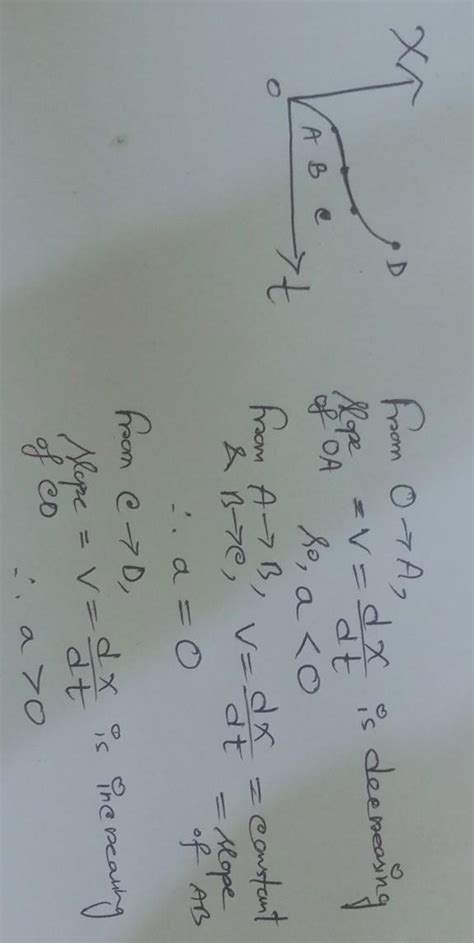 X
O
A B C
D
t
from O → A,
slope of OA = v = dx/dt is decreasing
so, a < 0
from A → B, & B → C, v = dx/dt = constant = slope of AB
∴ a = 0
from C → D,
slope of CD = v = dx/dt is increasing
∴ a > 0